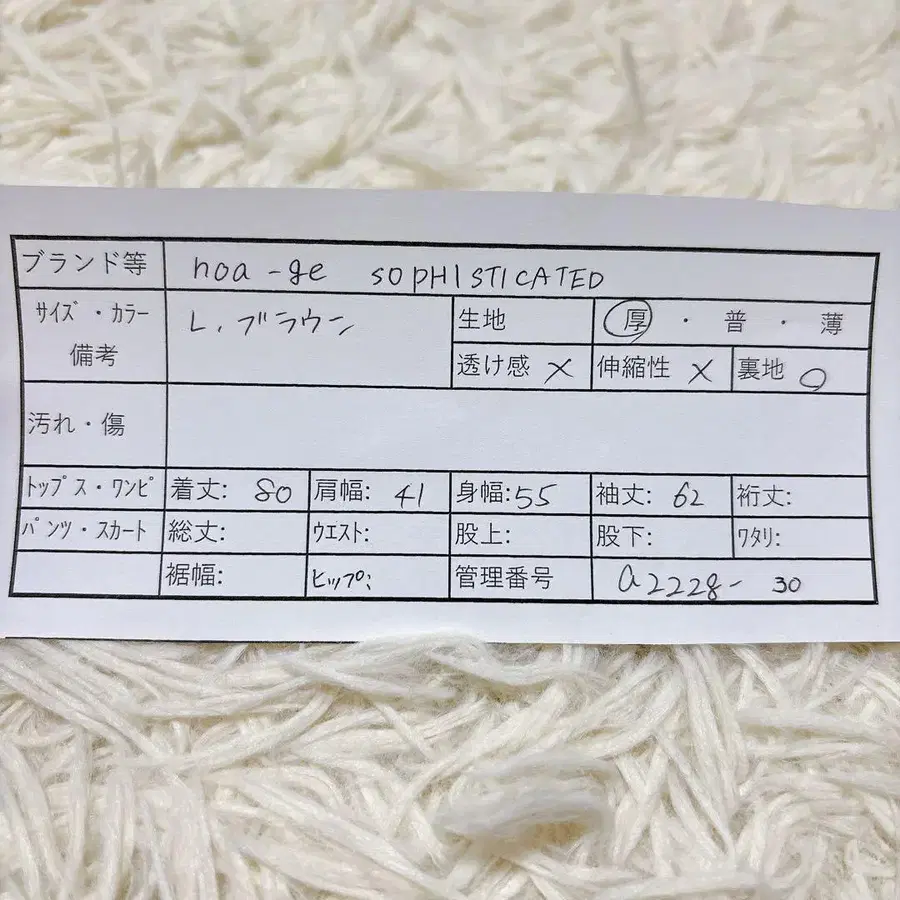 ブランド等 noa-ge SOPHISTICATED
サイズ・カラー L.ブラウン 生地 厚・普・薄
備考 透け感 × 伸縮性 × 裏地 ○
汚れ・傷
トップス・ワンピ 着丈: 80 肩幅: 41 身幅:55 袖丈: 62 裄丈:
パンツ・スカート 総丈: ウエスト: 股上: 股下: ワタリ:
裾幅: ヒップ: 管理番号 a2228-30